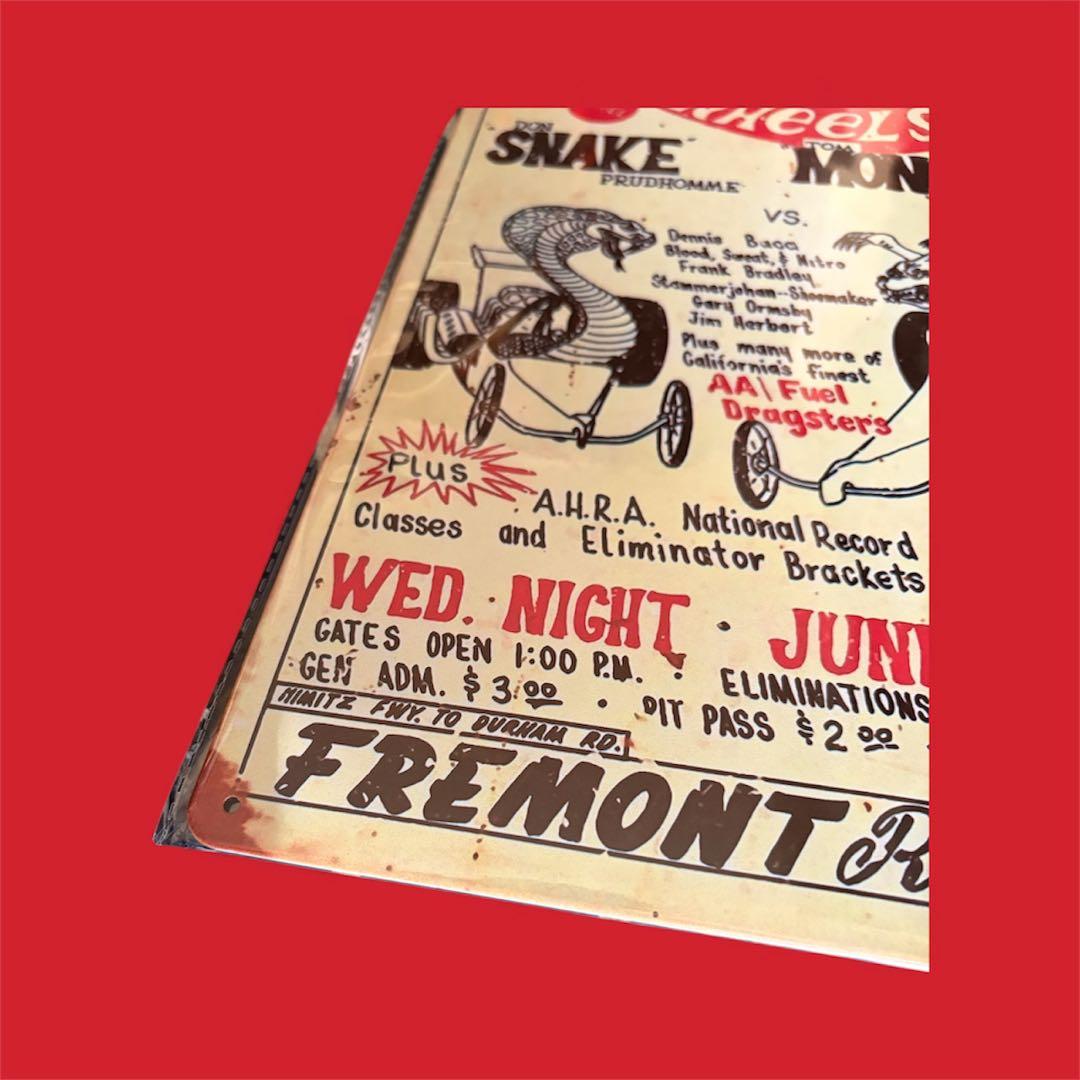 WHEELS
DON TOM
"SNAKE" "MON
PRUDHOMME
VS.
Dennis Baca
Blood, Sweat, & Nitro
Frank Bradley
Stammerjohan--Shoemaker
Gary Ormsby
Jim Herbert
Plus many more of
California's finest
AA\Fuel
Dragster's
PLUS
A.H.R.A. National Record
Classes and Eliminator Brackets
WED. NIGHT • JUN
GATES OPEN 1:00 P.M. • ELIMINATIONS
GEN ADM. $3.00 • PIT PASS $2.00
NIMITZ FWY. TO DURHAM RD.
FREMONT R